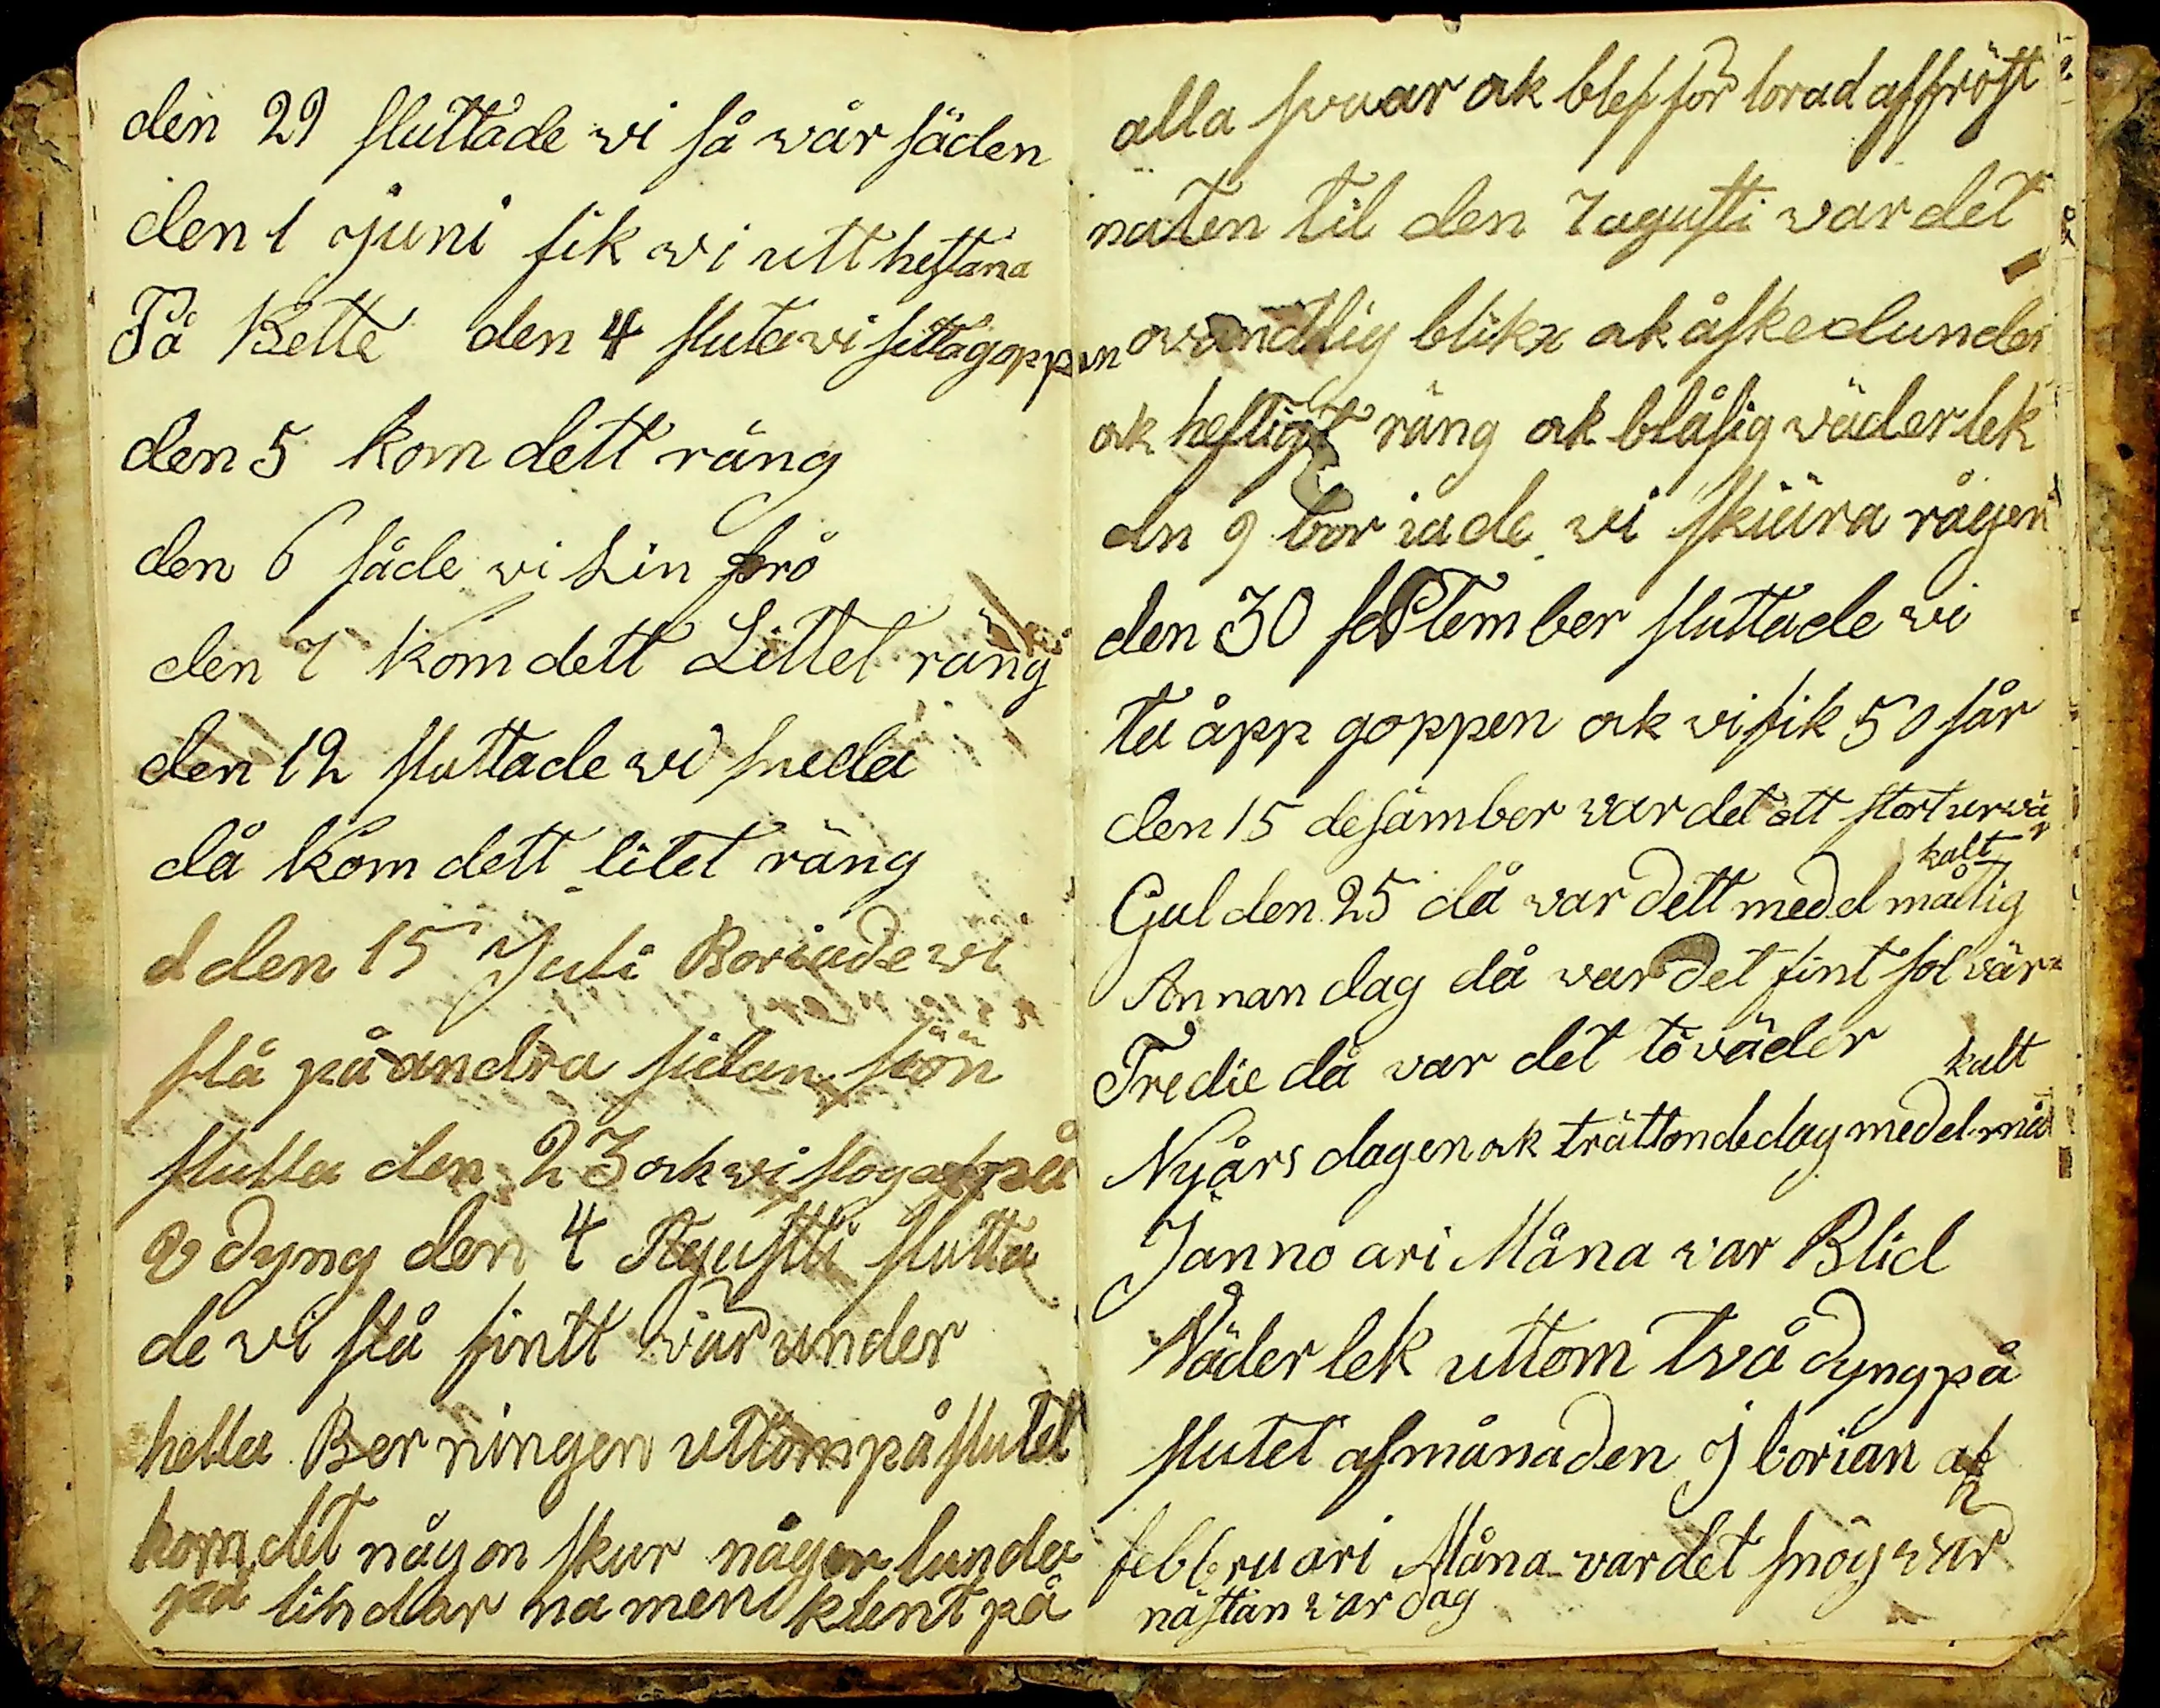 den 29 sluttade vi så wår säden
den 1 juni fik wi utt hestana
På Bette den 4 sluta vi setta goppen
den 5 kom dett räng
den 6 såde vi Lin frö
den 7 kom dett Littet räng
den 12 sluttade wi sveda
då kom dett litet räng
d den 15 Juli Boriade wi
slå på andra sidan siön
slutta den 23 ak vi slog på
8 dyng den 4 Agustti slutta
de vi slå fintt vär under
hella Berningen uttom på slutet
kom det någon skur någer lunda
på lindar na men klent på
alla svaar ak blef för lorad af fröst
naten til den 7 agusti war det
ovandlig blikx ak åskedunder
ak heftigt räng ak blåsig väderlek
dn 9 bor iade vi skiära rågen
den 30 September sluttade vi
ta åpp goppen ak vi fik 50 får
den 15 desämber war det ett stort urvär
Gul den 25 då war dett medelmåttig kalt
Annan dag då war det fint sol vär
Tredie då war det töväder
Nyårs dagen ak trättonde dag medelmåt kalt
Jannoari Måna war Blid
Väderlek uttom två dyng på
slutet af månaden J borian af
febbruari Måna war det snög vär
nästan war dag